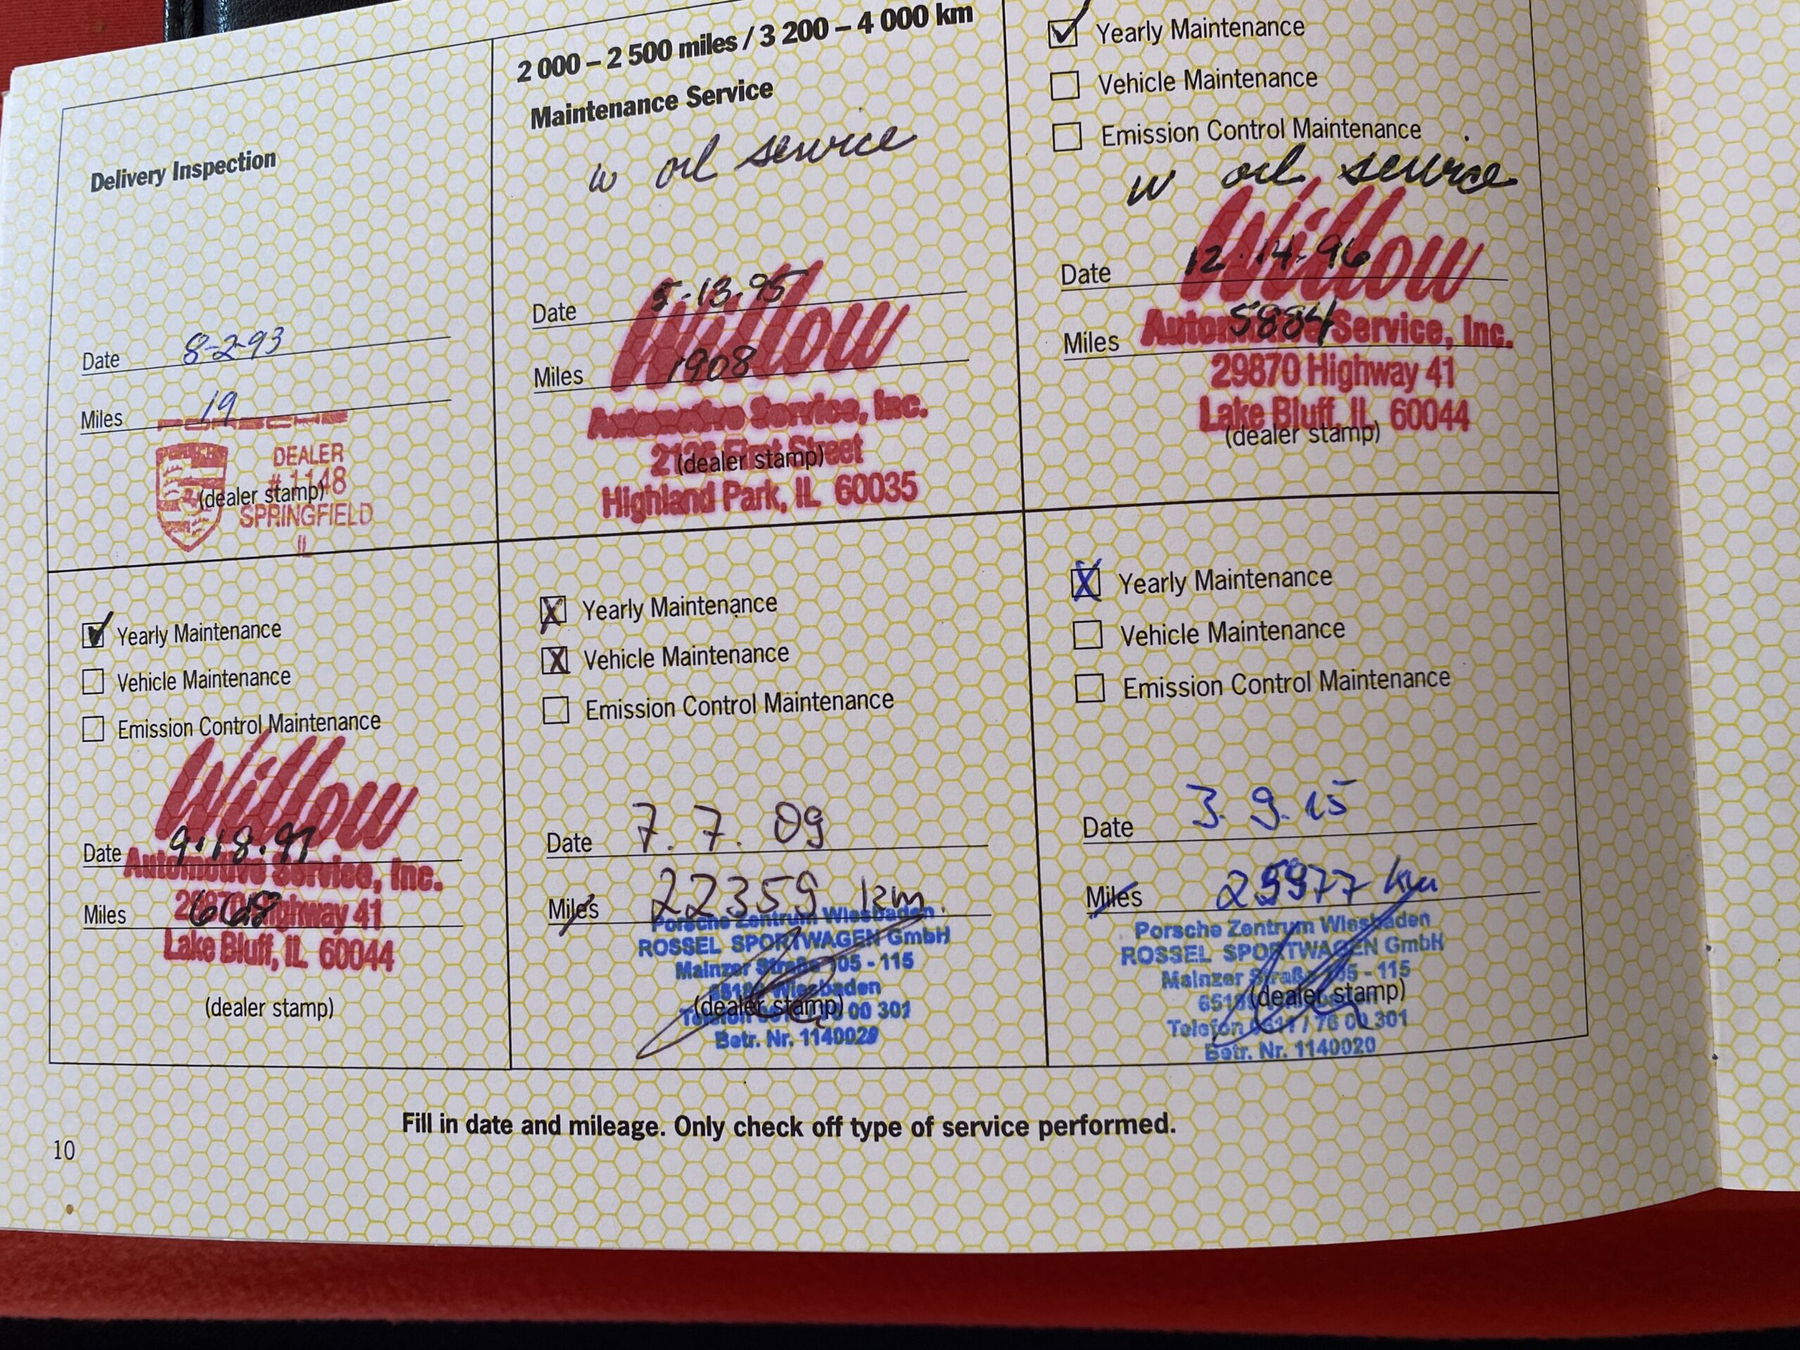 Delivery Inspection
Date 8-2-93
Miles 19
DEALER
# 1148
(dealer stamp)
SPRINGFIELD
IL
2 000 – 2 500 miles / 3 200 – 4 000 km
Maintenance Service
w oil service
Date 5-13-95
Willow
Miles 1908
Automotive Service, Inc.
First Street
(dealer stamp)
Highland Park, IL 60035
Yearly Maintenance
Vehicle Maintenance
Emission Control Maintenance
w oil service
Willow
Date 12-14-96
Miles 5884
Automotive Service, Inc.
29870 Highway 41
Lake Bluff, IL 60044
(dealer stamp)
Yearly Maintenance
Vehicle Maintenance
Emission Control Maintenance
Willow
Date 9-18-97
Automotive Service, Inc.
Miles
Highway 41
Lake Bluff, IL 60044
(dealer stamp)
Yearly Maintenance
Vehicle Maintenance
Emission Control Maintenance
Date 7. 7. 09
Miles 22359 km.
Porsche Zentrum Wiesbaden
ROSSEL SPORTWAGEN GmbH
Mainzer Straße 105 - 115
Wiesbaden
(dealer stamp)
Telefon 00 301
Betr. Nr. 1140029
Yearly Maintenance
Vehicle Maintenance
Emission Control Maintenance
Date 3. 9. 15
Miles 25977 km
Porsche Zentrum Wiesbaden
ROSSEL SPORTWAGEN GmbH
Mainzer Straße 105 - 115
(dealer stamp)
Telefon 0611 / 76 00 301
Betr. Nr. 1140020
Fill in date and mileage. Only check off type of service performed.
10